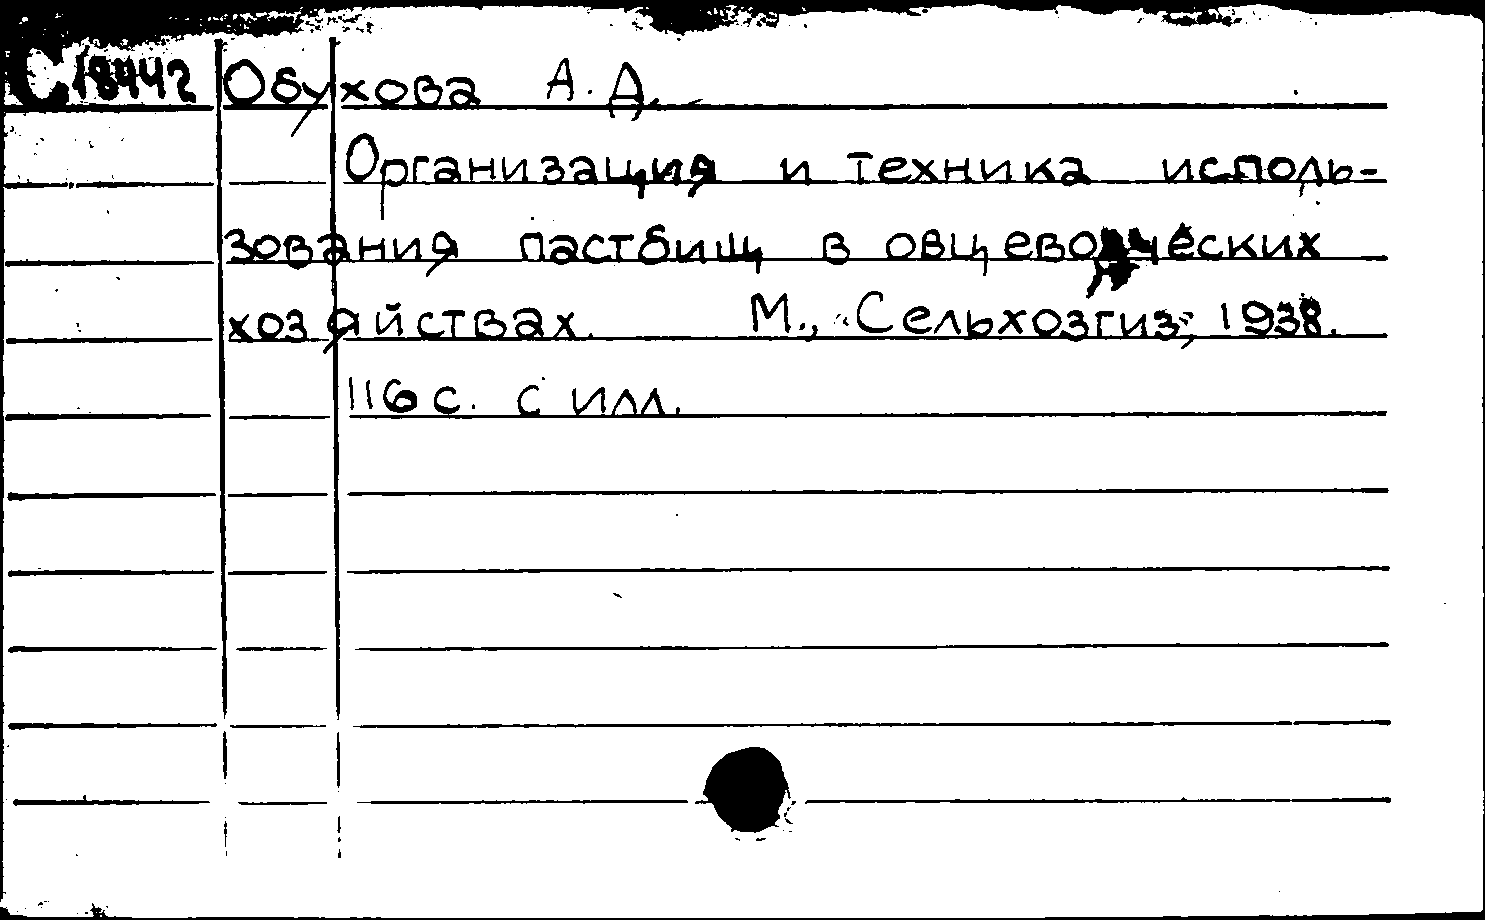 С18442 Обухова А. Д.
Организация и техника исполь-
зования пастбищ в овцеводческих
хозяйствах. М., "Сельхозгиз", 1938.
116 с. с илл.